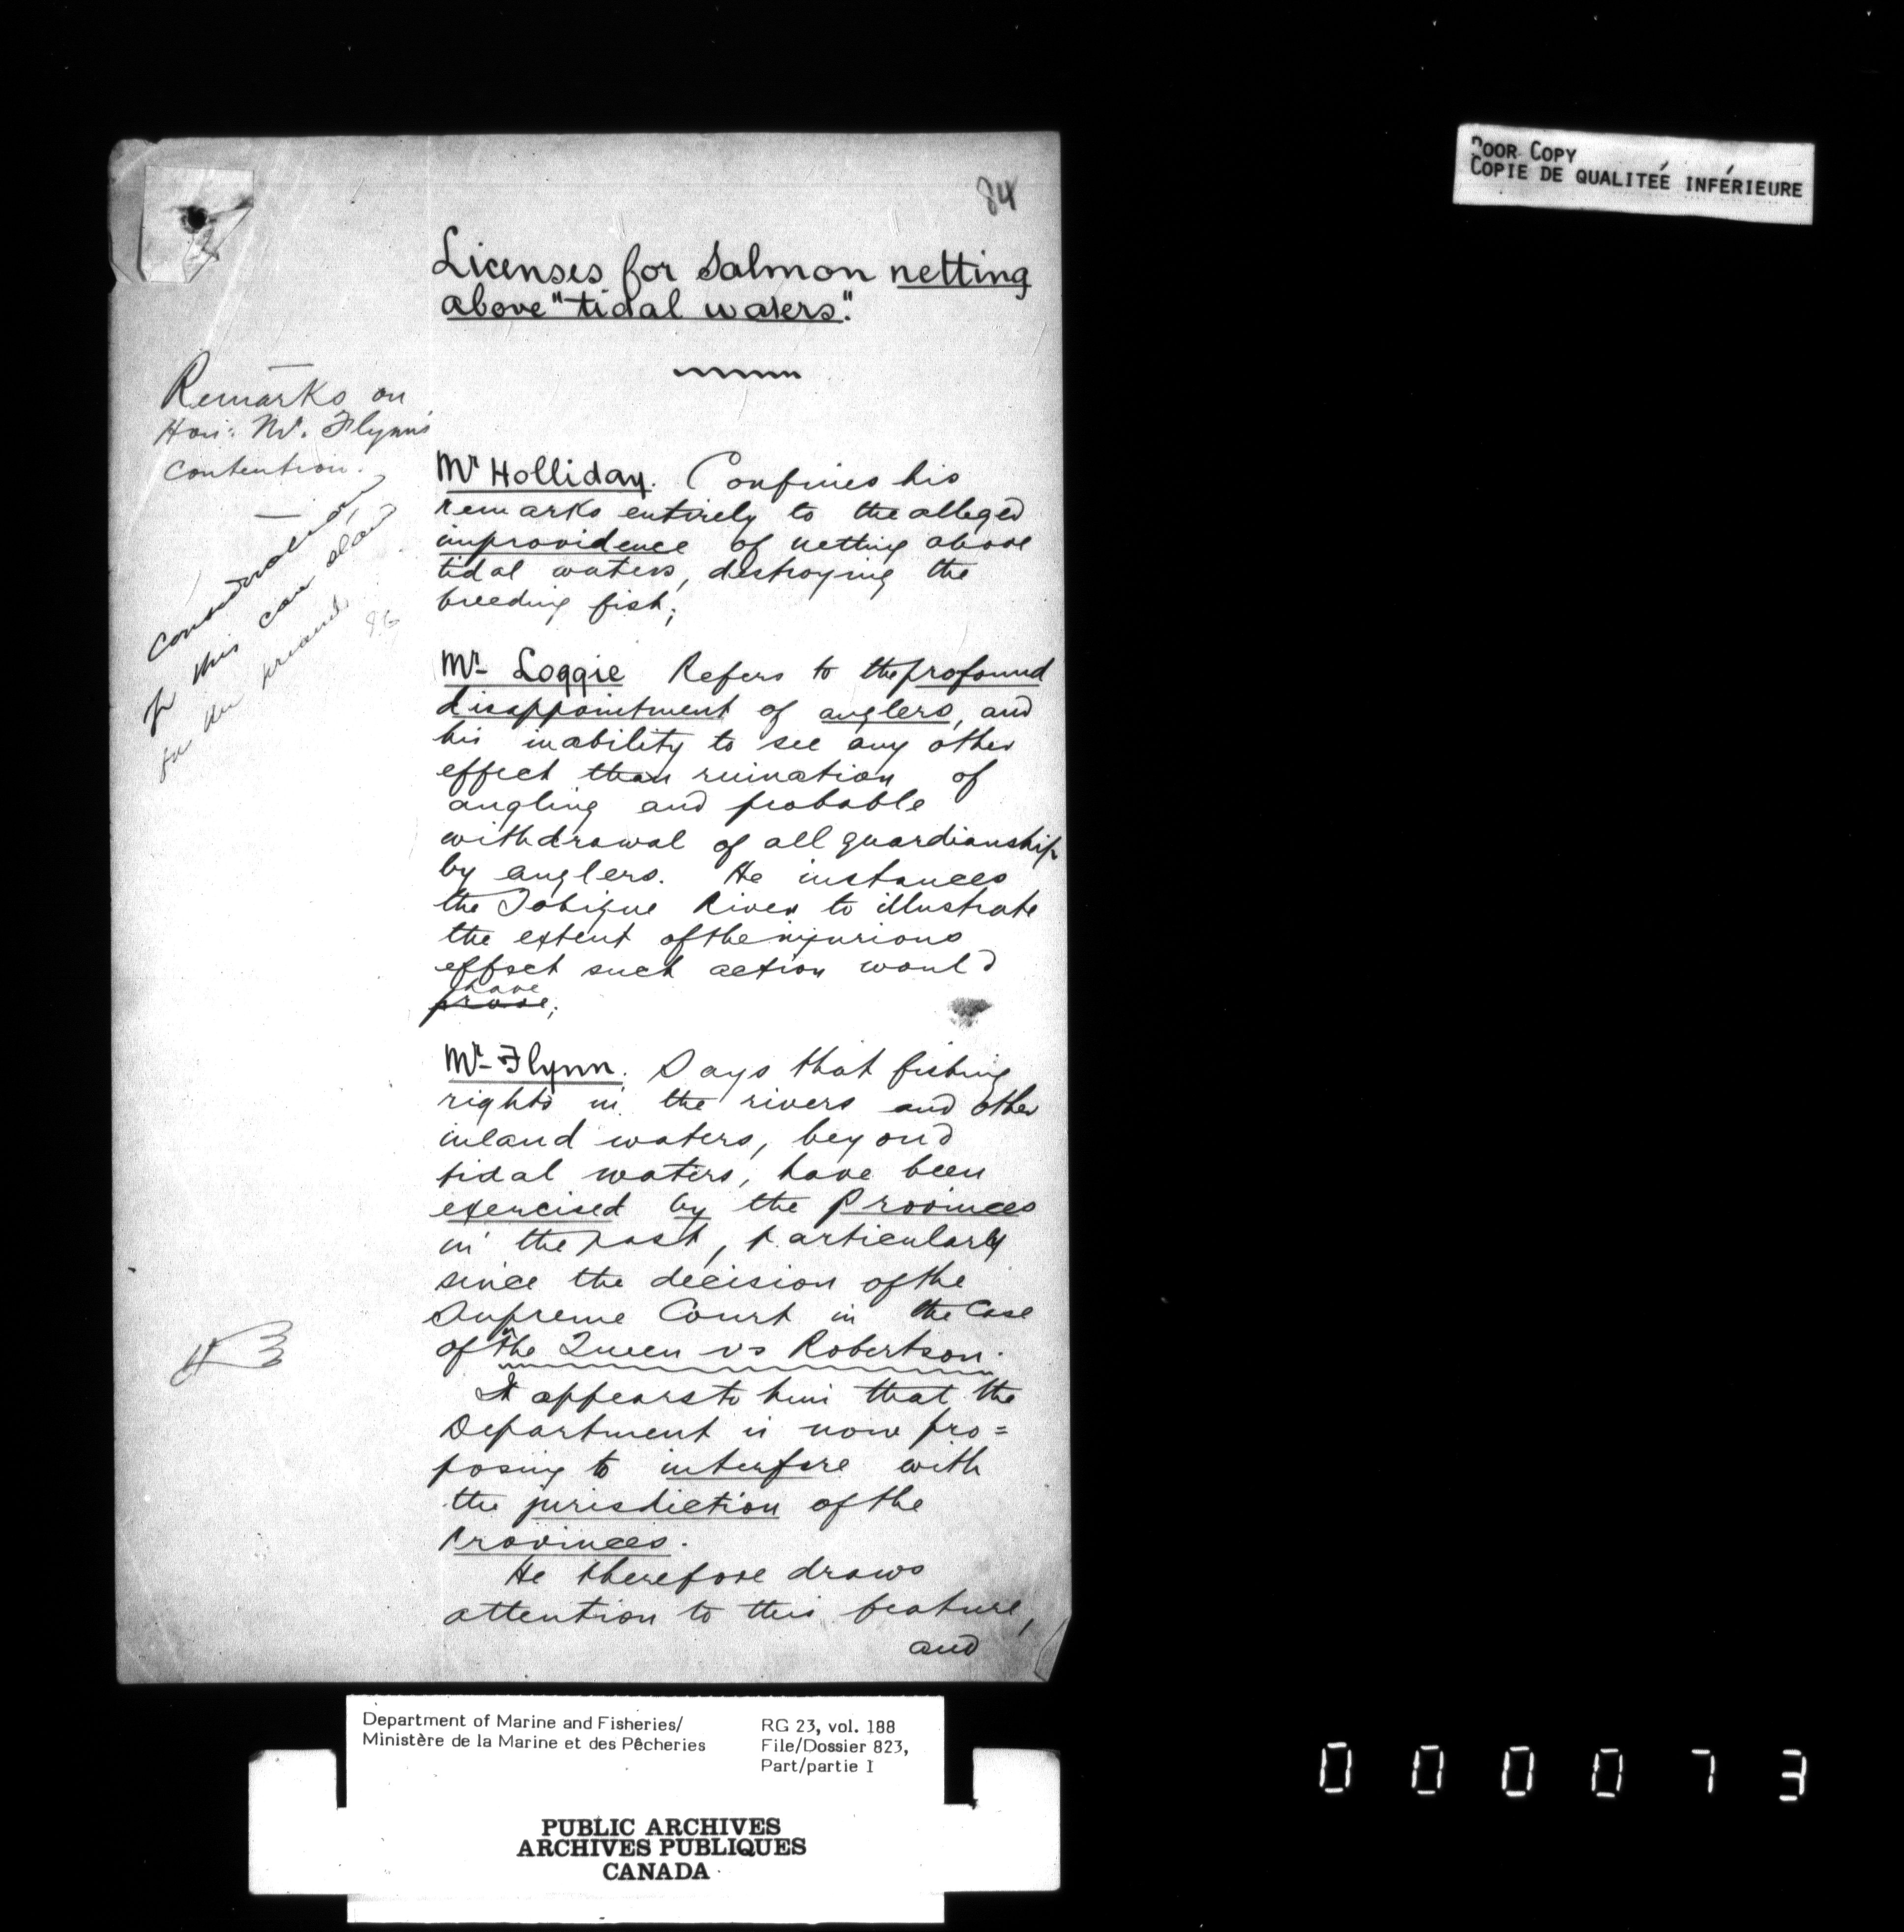 POOR COPY
COPIE DE QUALITEÉ INFÉRIEURE
84
Licenses for Salmon netting
above "tidal waters".
Remarks on
Hon: Mr. Flynn's
contention.
Consideration
of this can stand
for the present
Mr Holliday. Confines his
remarks entirely to the alleged
improvidence of netting above
tidal waters, destroying the
breeding fish;
Mr Loggie Refers to the profound
disappointment of anglers, and
his inability to see any other
effect than ruination of
angling and probable
withdrawal of all guardianship
by anglers. He instances
the Tobique River to illustrate
the extent of the injurious
effect such action would
have
prove;
Mr Flynn. Says that fishing
rights in the rivers and other
inland waters, beyond
tidal waters, have been
exercised by the Provinces
in the past, particularly
since the decision of the
Supreme Court in the Case
of "the Queen vs Robertson.
It appears to him that the
Department is now pro=
posing to interfere with
the jurisdiction of the
Provinces.
He therefore draws
attention to this feature,
and
Department of Marine and Fisheries/
Ministère de la Marine et des Pêcheries
RG 23, vol. 188
File/Dossier 823,
Part/partie I
PUBLIC ARCHIVES
ARCHIVES PUBLIQUES
CANADA
000073